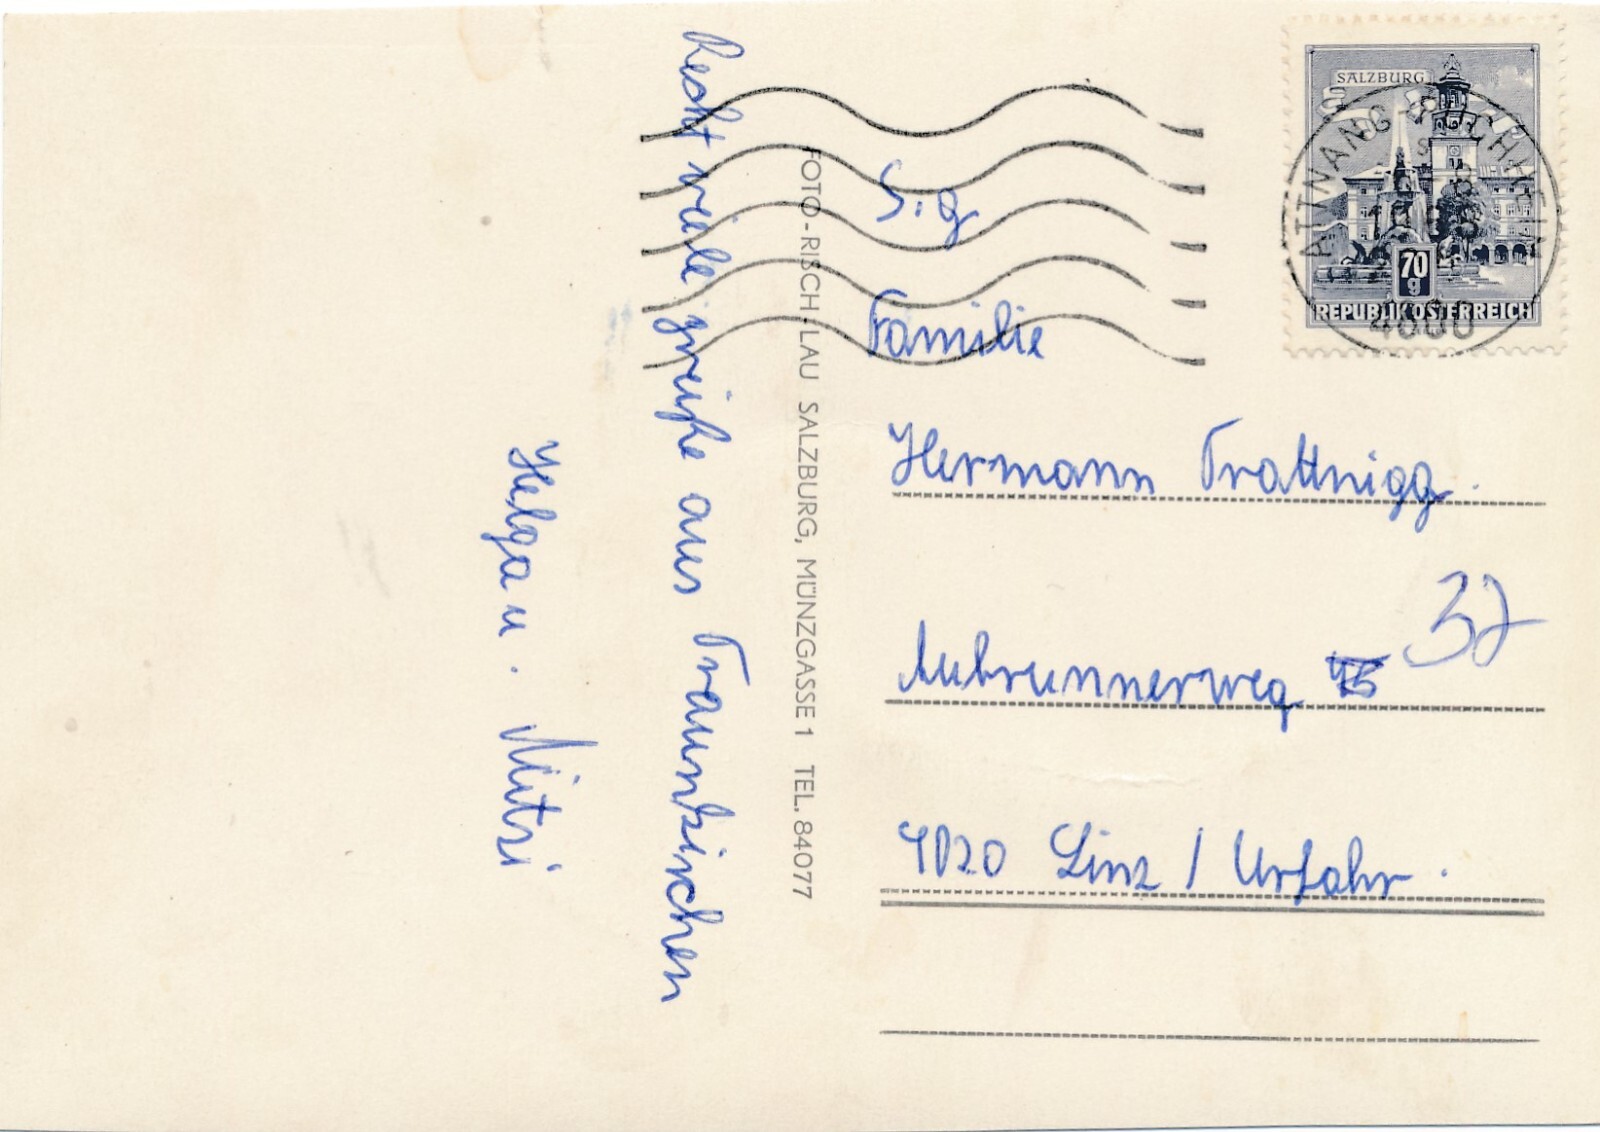 Recht viele grüße aus Traunkirchen
Helga u. Mitzi
FOTO-RISCH-LAU SALZBURG, MÜNZGASSE 1 TEL. 84077
S.g
Familie
Hermann Trattnigg.
Aubrunnerweg 37
4020 Linz / Urfahr.
SALZBURG
70
g
REPUBLIK ÖSTERREICH
ATTNANG-PUCHHEIM